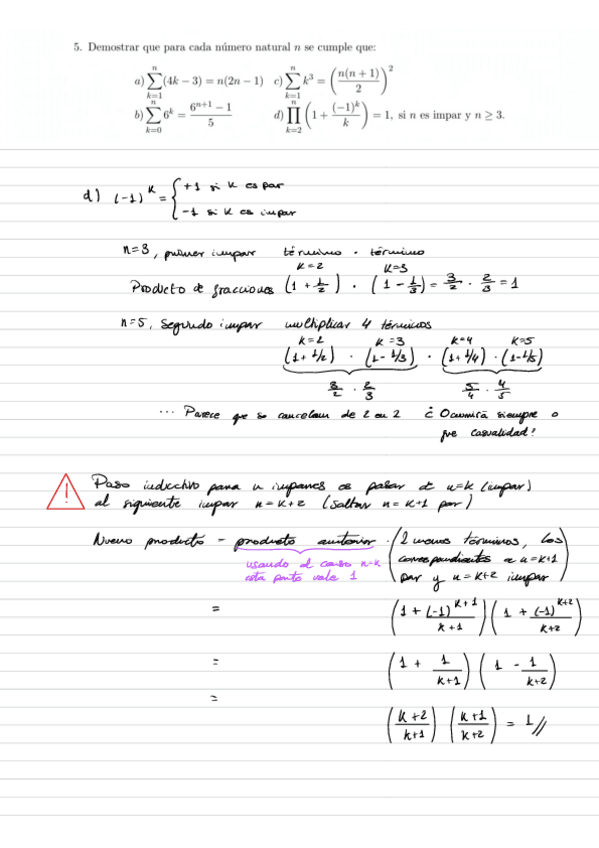 5. Demostrar que para cada número natural n se cumple que:
a) ∑_{k=1}^{n} (4k − 3) = n(2n − 1) c) ∑_{k=1}^{n} k³ = (n(n + 1)/2)²
b) ∑_{k=0}^{n} 6^k = (6^{n+1} − 1)/5 d) ∏_{k=2}^{n} (1 + (−1)^k/k) = 1, si n es impar y n ≥ 3.
d) (-1)^k = { +1 si k es par
-1 si k es impar
n=3, primer impar término · término
k=2 k=3
Producto de fracciones (1 + 1/2) · (1 - 1/3) = 3/2 · 2/3 = 1
n=5, segundo impar multiplicar 4 términos
k=2 k=3 k=4 k=5
(1+1/2) · (1-1/3) · (1+1/4) · (1-1/5)
3/2 · 2/3 5/4 · 4/5
... Parece que se cancelan de 2 en 2 ¿ Ocurrirá siempre o
fue casualidad?
Paso inductivo para n impares es pasar de n=k (impar)
al siguiente impar n=k+2 (saltar n=k+1 par)
Nuevo producto = producto anterior · (2 nuevos términos, los
usando el caso n=k correspondientes a n=k+1
esta parte vale 1 par y n=k+2 impar)
= (1 + (-1)^{k+1}/k+1) (1 + (-1)^{k+2}/k+2)
= (1 + 1/k+1) (1 - 1/k+2)
= (k+2/k+1) (k+1/k+2) = 1 //